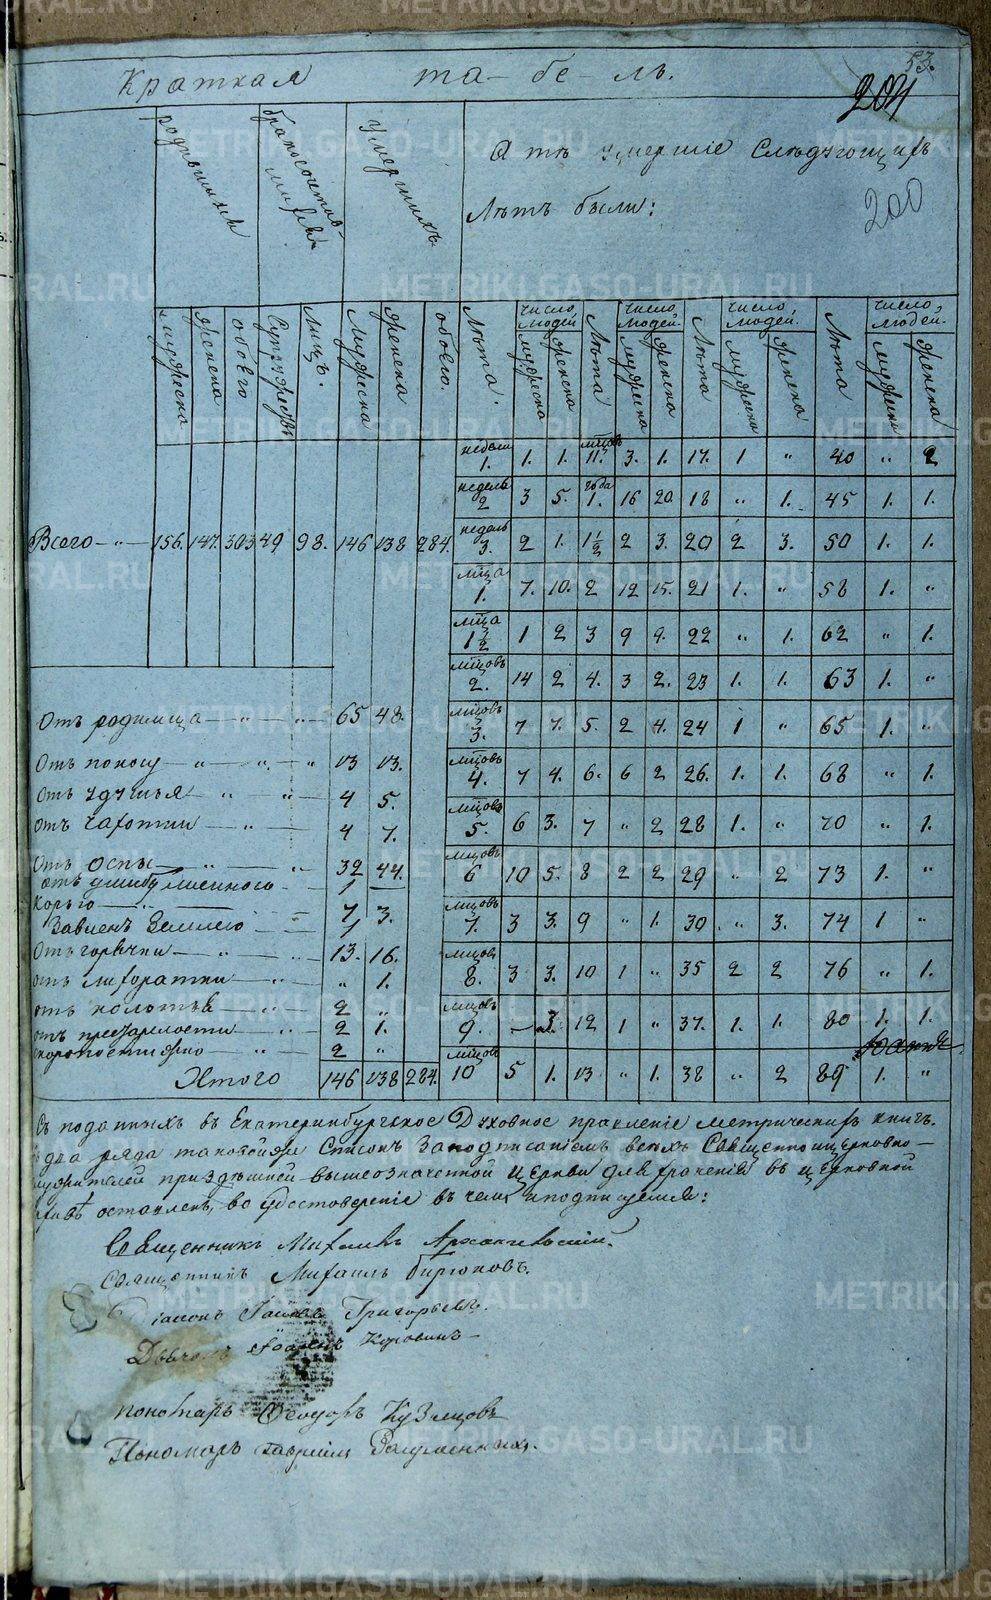 53.
204
200
Краткая та-бе-ль.
родившихся
бракосочетав-
шихся
умершихъ
А тѣ умершіе слѣдующихъ
лѣтъ были:
мужеска женска обоего супружествъ лицъ. мужеска женска обоего.
лѣта. число людей мужеска женска лѣта число людей. мужеска женска лѣта число людей. мужеска женска лѣта число людей. мужеска женска
недели 1. 1. 1. мцовъ 11. 3. 1. 17. 1 " 40 " 2
недель 2 3 5. года 1. 16 20. 18 " 1. 45 1. 1.
Всего — " — 156. 147. 303 49 98. 146 138 284.
недель 3. 2 1. 1½ 2 3. 20 2 3. 50 1. 1.
мца 1. 7. 10. 2 12 15. 21 1. " 58 1. "
мца 1½ 1 2 3 9 9. 22 " 1. 62 " 1.
мцовъ 2. 14 2 4. 3 2. 23 1. 1. 63 1. "
мцовъ 3. 7 7. 5. 2 4. 24 1 " 65 1. "
мцовъ 4. 7 4. 6. 6 2 26. 1. 1. 68 " 1.
мцовъ 5. 6 3. 7 " 2 28 1. " 70 " 1.
мцовъ 6 10 5. 8 2 2 29 " 2 73 1. "
мцовъ 7. 3 3. 9 " 1. 30 " 3. 74 1 "
мцовъ 8. 3 3. 10 1 " 35 2 2 76 " 1.
мцовъ 9. 12 1 " 37. 1. 1. 80 1. 1.
мцовъ 10 5 1. 13 " 1. 38 " 2 89 1. "
Отъ родимца — " — " 65 48.
Отъ поносу — " — " — " 13 13.
Отъ удушья — " " 4 5.
Отъ чахотки — " 4 7.
Отъ оспы — " — " 32 44.
отъ 1 —
Корью — 7 3.
Завленъ Землею — 1
Отъ горячки — " — " 13. 16.
отъ лихоратки — " " 1.
отъ колотья — " 2 "
отъ престарелости — " 2 1.
скоропостижно — " 2 "
Итого 146 138 284.
Съ поданныхъ въ Екатеринбургское Духовное правленіе метрическихъ книгъ.
два ряда таковой же Списокъ За подписаніемъ всехъ Священноицерковно-
служителей при здѣшней вышеозначенной церкви для храненія въ церковной
оставленъ, во удостовереніе въ чемъ и подписуемся:
Священникъ Михаилъ Архангельскій.
Священникъ Михаилъ Бирюковъ.
Діаконъ Григорьевъ.
Дьячокъ
пономарь Ѳеодоръ Кузнецовъ
Пономарь Гаврiилъ